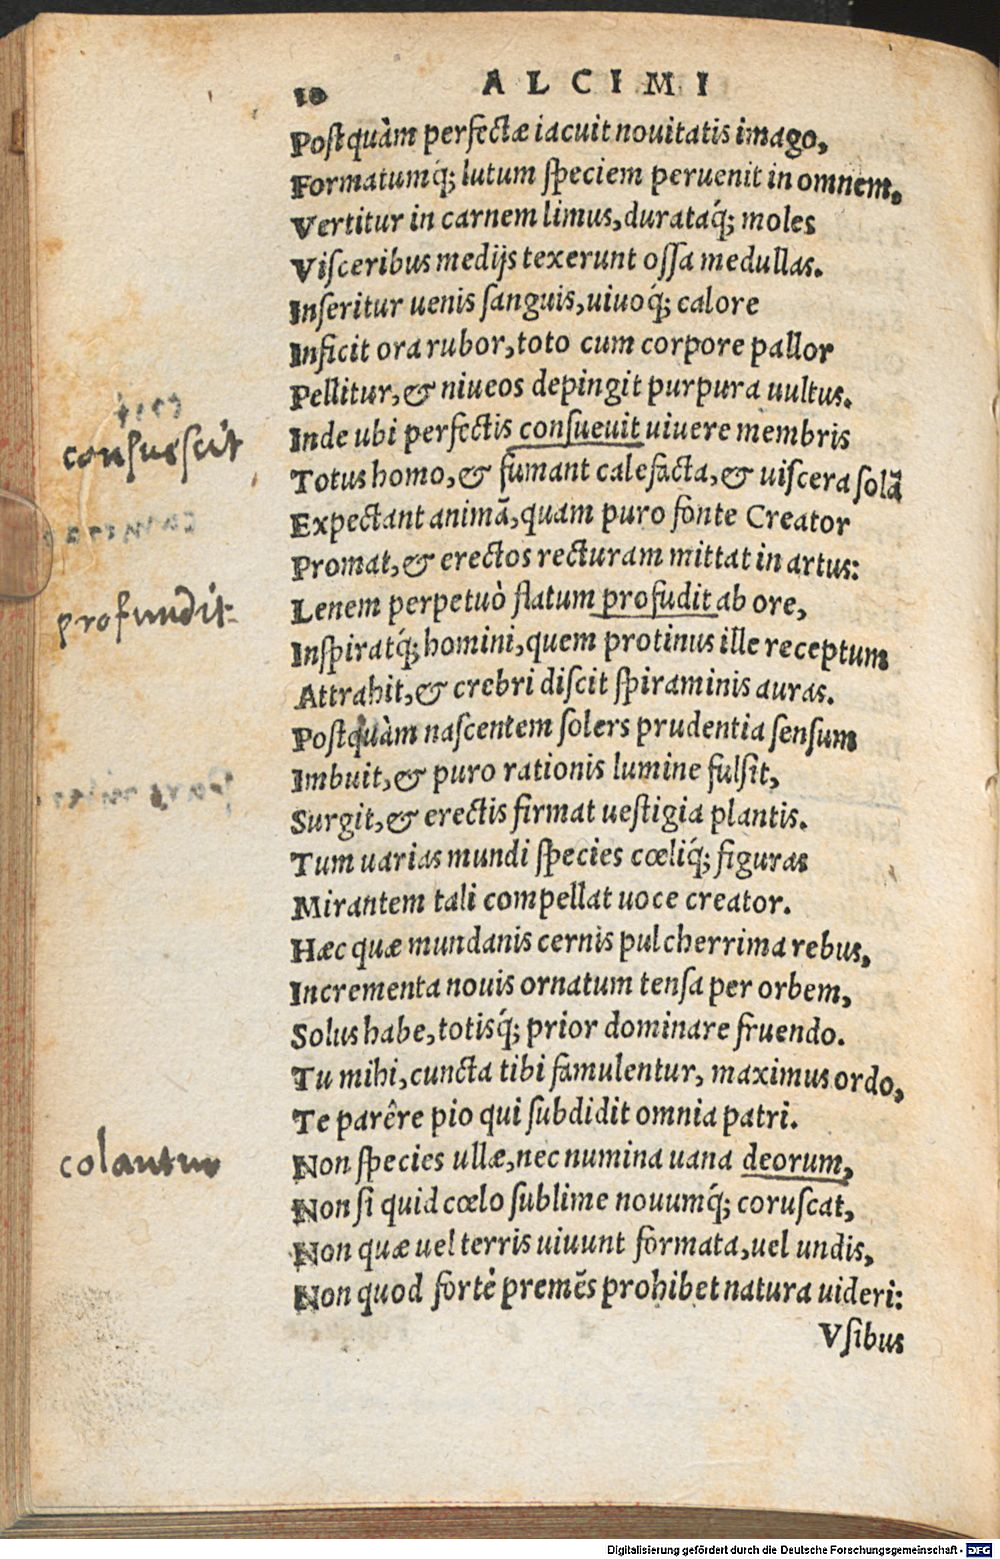 10 ALCIMI
Postquàm perfectæ iacuit nouitatis imago,
Formatumq́; lutum speciem peruenit in omnem,
Vertitur in carnem limus, durataq́; moles
Visceribus medijs texerunt ossa medullas.
Inseritur uenis sanguis, uiuoq́; calore
Inficit ora rubor, toto cum corpore pallor
Pellitur, & niueos depingit purpura uultus.
Inde ubi perfectis consueuit uiuere membris
consuescit
Totus homo, & fumant calefacta, & uiscera solā
Expectant animā, quam puro fonte Creator
Promat, & erectos recturam mittat in artus:
Lenem perpetuò flatum profudit ab ore,
profundit
Inspiratq́; homini, quem protinus ille receptum
Attrahit, & crebri discit spiraminis auras.
Postquàm nascentem solers prudentia sensum
Imbuit, & puro rationis lumine fulsit,
Surgit, & erectis firmat uestigia plantis.
Tum uarias mundi species cœliq́; figuras
Mirantem tali compellat uoce creator.
Hæc quæ mundanis cernis pulcherrima rebus,
Incrementa nouis ornatum tensa per orbem,
Solus habe, totisq́; prior dominare fruendo.
Tu mihi, cuncta tibi famulentur, maximus ordo,
Te parêre pio qui subdidit omnia patri.
Non species ullæ, nec numina uana deorum,
colantur
Non si quid cœlo sublime nouumq́; coruscat,
Non quæ uel terris uiuunt formata, uel undis,
Non quod fortè premēs prohibet natura uideri:
Vsibus
Digitalisierung gefördert durch die Deutsche Forschungsgemeinschaft - DFG